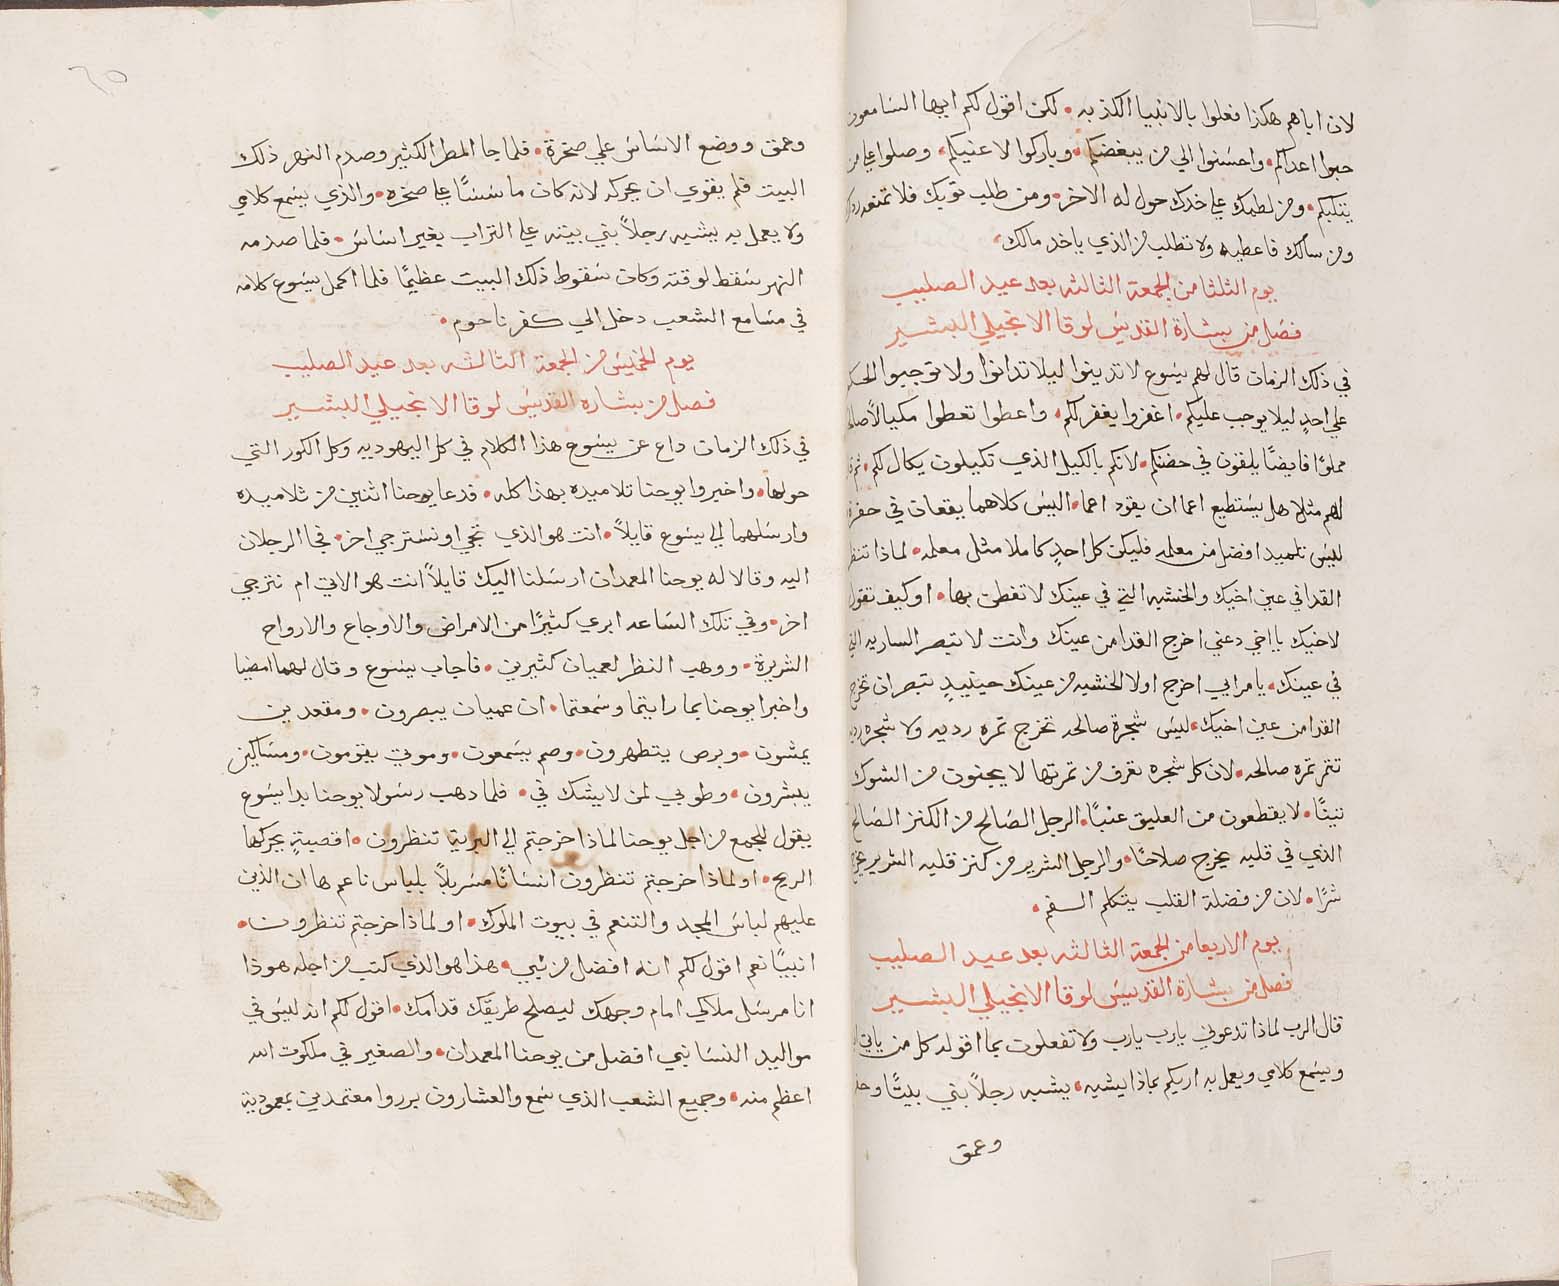 لان اباهم هكذا فعلوا بالانبيا الكذبه • لكن اقول لكم ايها السامعون
حبوا اعداكم • واحسنوا الي من يبغضكم • وباركوا لاعنيكم • وصلوا علي من
يثلبكم • ومن لطمك علي خدك حول له الاخر • ومن طلب ثوبك فلا تمنعه
ومن سالك فاعطيه ولا تطلب من الذي ياخد مالك •
يوم الثلثا من الجمعة الثالثه بعد عيد الصليب
فصل من بشارة القديس لوقا الانجيلي البشير
في ذلك الزمان قال لهم يسوع لا تدينوا ليلا تدانوا ولا توجبوا الحكم
علي احدٍ ليلا يوجب عليكم • اغفروا يغفر لكم • واعطوا تعطوا مكيالاً صالحا
مملوًا فايضًا يلقون في حضنكم • لانكم بالكيل الذي تكيلون يكال لكم •
لهم مثلا هل يستطيع اعما ان يقود اعما • اليس كلاهما يقعان في حفره
ليس تلميد افضل من معلمه فليكن كل احدٍ كاملا مثل معلمه • لماذا تنظر
القدا في عين اخيك والخشبه التي في عينك لا تفطن بها • او كيف تقول
لاخيك يا اخي دعني اخرج القدا من عينك وانت لا تبصر الساريه التي
في عينك • يا مرايي اخرج اولا الخشبه من عينك حينيدٍ تبصر ان تخرج
القدا من عين اخيك • ليس شجرة صالحه تخرج ثمره رديه ولا شجره رديه
تثمر ثمره صالحه • لان كل شجره تعرف من ثمرتها لا يجنون من الشوك
تينًا • لا يقطعون من العليق عنبًا • الرجل الصالح من الكنز الصالح
الذي في قلبه يخرج صلاحًا • والرجل الشرير من كنز قلبه الشرير يخرج
شرًا • لان من فضلة القلب يتكلم الفم •
يوم الاربعا من الجمعة الثالثه بعد عيد الصليب
فصل من بشارة القديس لوقا الانجيلي البشير
قال الرب لماذا تدعوني يارب يارب ولا تفعلون بما اقوله كل من ياتي
ويسمع كلامي ويعمل به اريكم بماذا يشبه • يشبه رجلاً بني بيتًا وحفر
وعمق
وعمق ووضع الاساس علي صخرة • فلما جا المطر الكثير وصدم النهر ذلك
البيت فلم يقوي ان يحركه لانه كان ماسسًا علي صخره • والذي يسمع كلامي
ولا يعمل به يشبه رجلاً بني بيته علي التراب بغير اساس • فلما صدمه
النهر سقط لوقته وكان سقوط ذلك البيت عظيمًا فلما اكمل يسوع كلامه
في مسامع الشعب دخل الي كفرناحوم •
يوم الخميس من الجمعة الثالثه بعد عيد الصليب
فصل من بشاره القديس لوقا الانجيلي البشير
في ذلك الزمان داع عن يسوع هذا الكلام في كل اليهوديه وكل الكور التي
حولها • واخبروا يوحنا تلاميده بهذا كله • فدعا يوحنا اثنين من تلاميده
وارسلهما الي يسوع قايلاً • انت هو الذي تجي او نسترجي اخر • فجا الرجلان
اليه وقالا له يوحنا المعمدان ارسلنا اليك قايلاً انت هو الاتي ام نترجي
اخر • وفي تلك الساعه ابري كثيرًا من الامراض والاوجاع والارواح
الشريرة • ووهب النظر لعميان كثيرين • فاجاب يسوع وقال لهما امضيا
واخبرا يوحنا بما رايتما وسمعتما • ان عميان يبصرون • ومقعدين
يمشون • وبرص يتطهرون • وصم يسمعون • وموتي يقومون • ومساكين
يبشرون • وطوبي لمن لا يشك في • فلما دهب رسولا يوحنا بدا يسوع
يقول للجمع من اجل يوحنا لماذا خرجتم الي البرية تنظرون • اقصبةٍ يحركها
الريح • او لماذا خرجتم تنظرون انسانًا مسربلاً بلباس ناعم ها ان الذين
عليهم لباس المجد والتنعم في بيوت الملوك • او لماذا خرجتم تنظرون •
انبيًا نعم اقول لكم انه افضل من نبي • هذا هو الذي كتب من اجله هوذا
انا مرسل ملاكي امام وجهك ليصلح طريقك قدامك • اقول لكم انه ليس في
مواليد النسا نبي افضل من يوحنا المعمدان • والصغير في ملكوت الله
اعظم منه • وجميع الشعب الذي سمع والعشارون برروا معتمدين بمعمودية